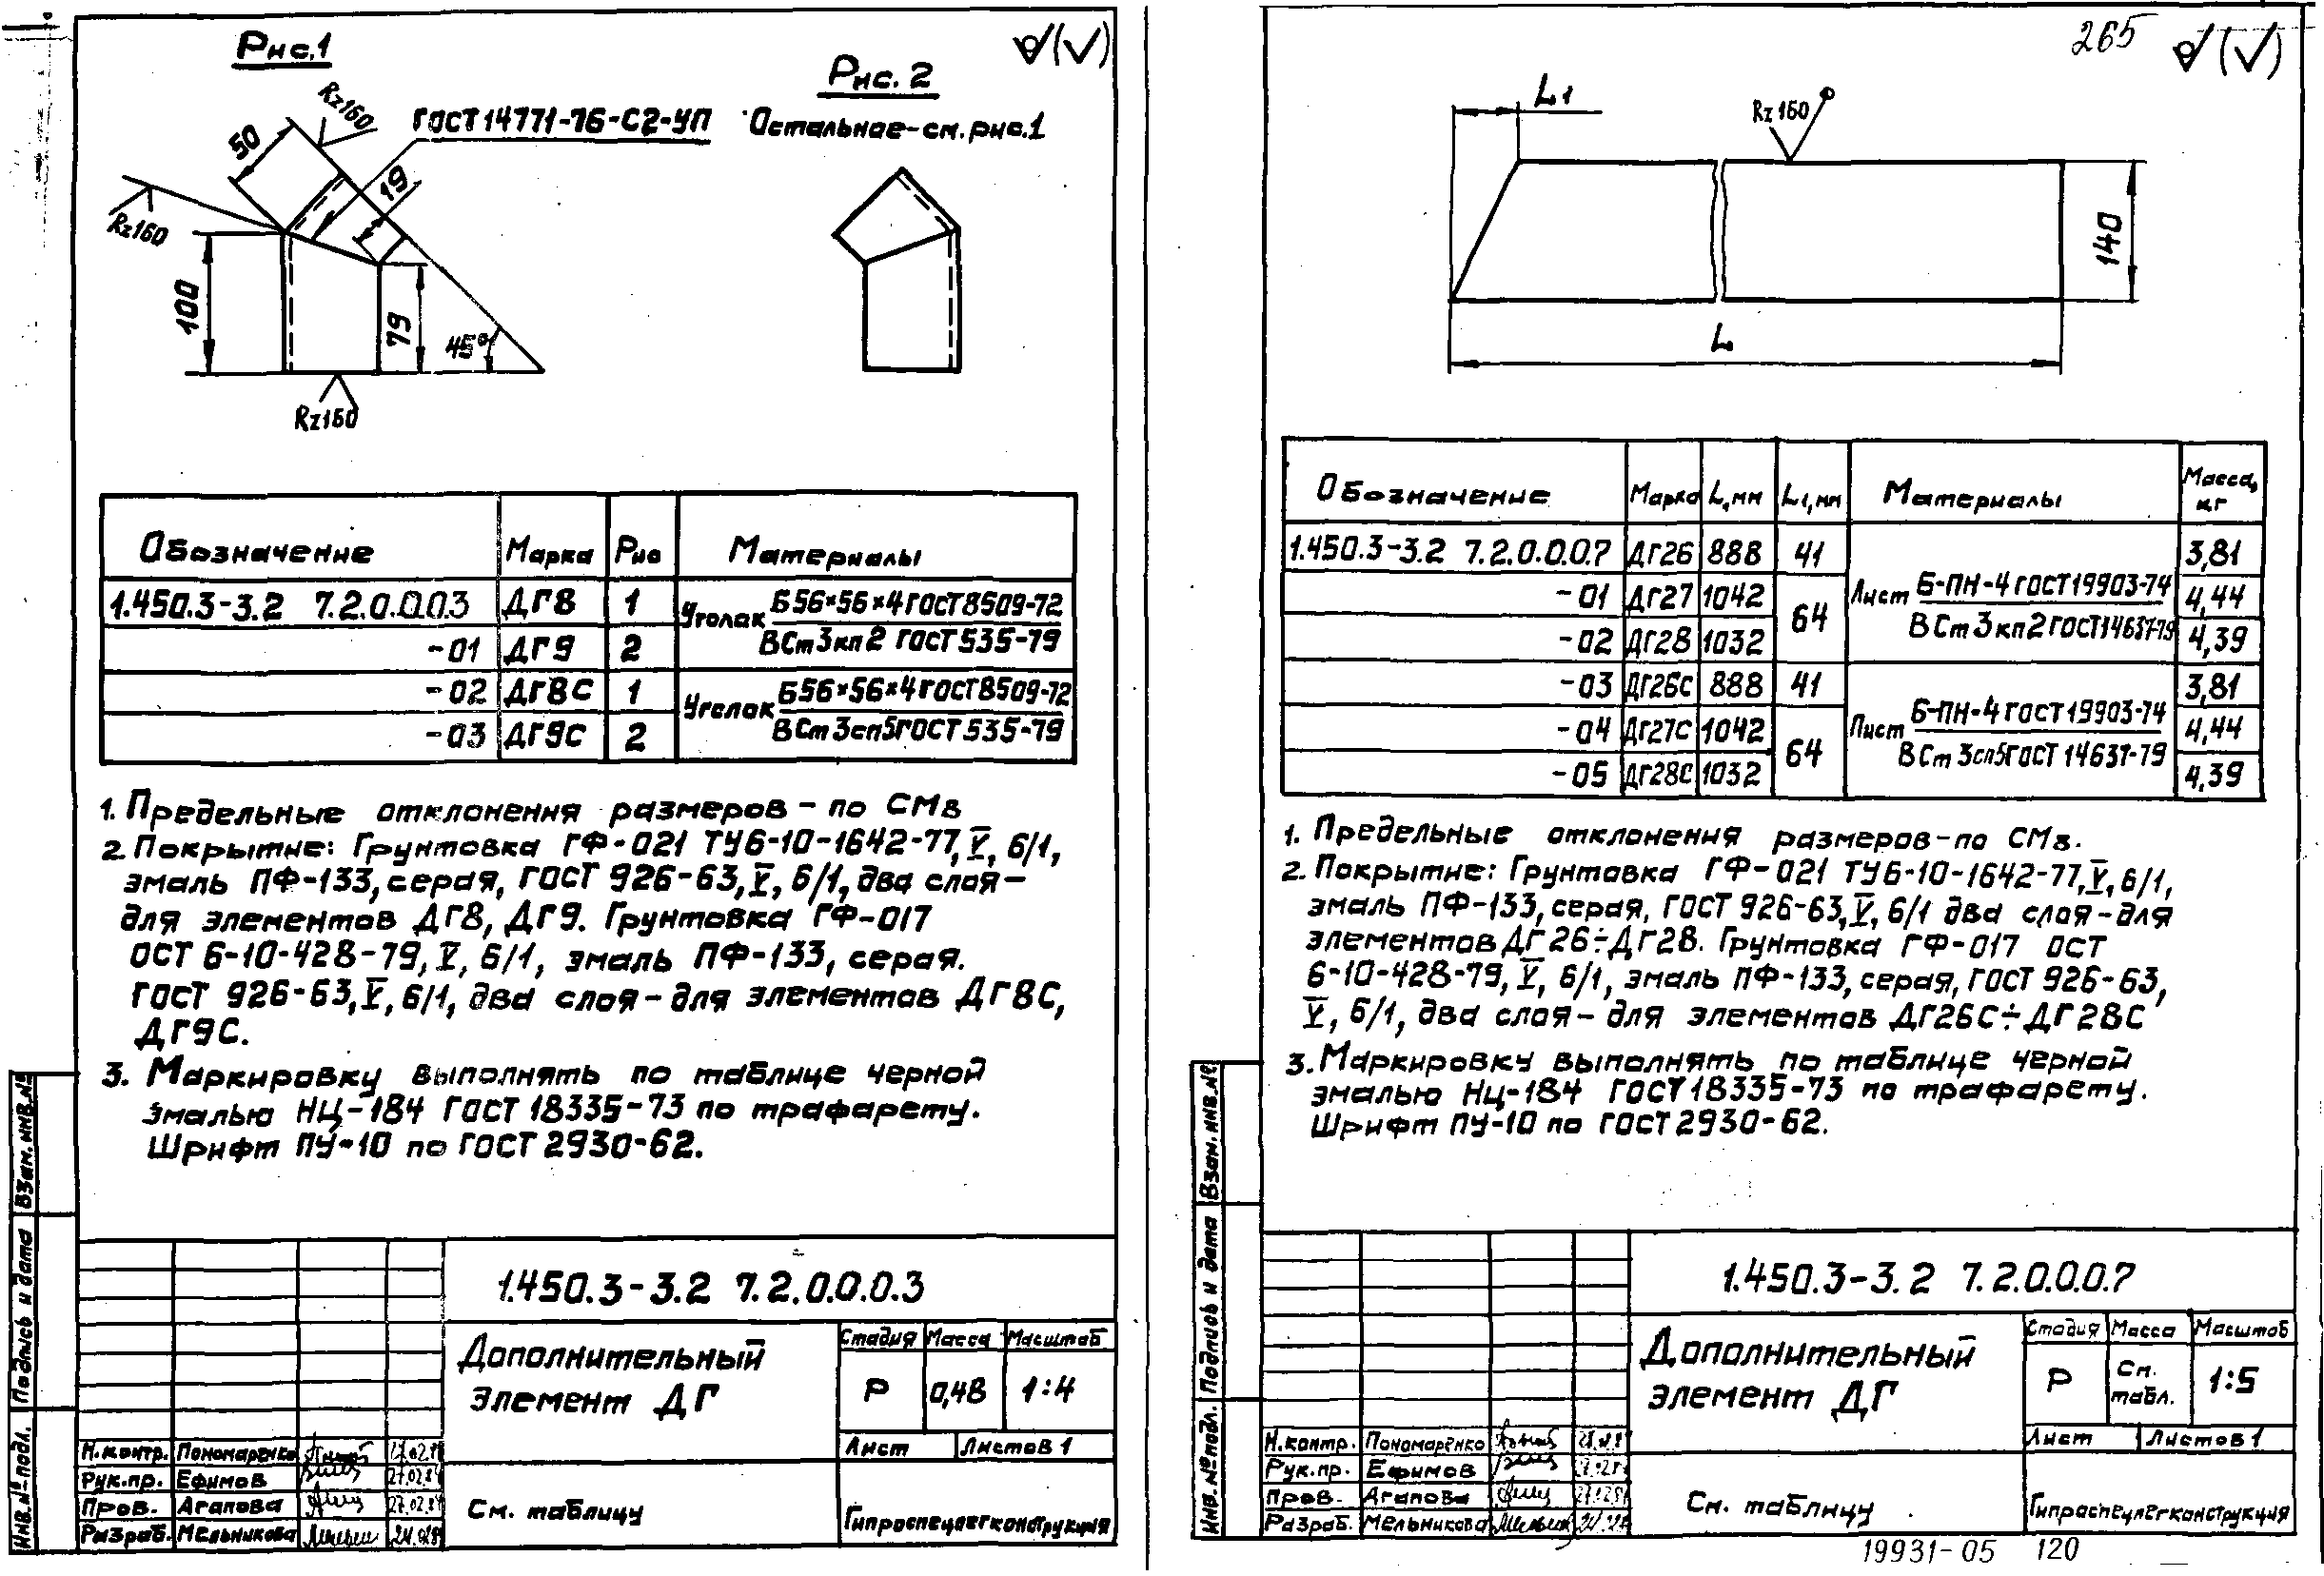 Рис.1
Рис. 2
Rz160
ГОСТ 14771-76-С2-УП
Остальное-см. рис.1
50
19
Rz160
100
79
45°
Rz160
Обозначение Марка Рис Материалы
1.450.3-3.2 7.2.0.0.0.3 ДГ8 1 Уголок Б56×56×4 ГОСТ 8509-72
-01 ДГ9 2 ВСт3кп2 ГОСТ 535-79
-02 ДГ8С 1 Уголок Б56×56×4 ГОСТ 8509-72
-03 ДГ9С 2 ВСт3сп5 ГОСТ 535-79
1. Предельные отклонения размеров - по СМ8
2. Покрытие: Грунтовка ГФ-021 ТУ6-10-1642-77, V, 6/1,
эмаль ПФ-133, серая, ГОСТ 926-63, V, 6/1, два слоя -
для элементов ДГ8, ДГ9. Грунтовка ГФ-017
ОСТ 6-10-428-79, V, 6/1, эмаль ПФ-133, серая.
ГОСТ 926-63, V, 6/1, два слоя - для элементов ДГ8С,
ДГ9С.
3. Маркировку выполнять по таблице черной
эмалью НЦ-184 ГОСТ 18335-73 по трафарету.
Шрифт ПУ-10 по ГОСТ 2930-62.
Взам. инв. №
Подпись и дата
Инв. № подл.
1.450.3-3.2 7.2.0.0.0.3
Дополнительный
элемент ДГ
Стадия Масса Масштаб
Р 0,48 1:4
Лист Листов 1
Н.контр. Пономаренко
Рук.пр. Ефимов 27.02.84
Пров. Агапова 27.02.84
Разраб. Мельникова
См. таблицу
Гипроспецлегконструкция
265
L1
Rz160
140
L
Обозначение Марка L, мм L1, мм Материалы Масса, кг
1.450.3-3.2 7.2.0.0.0.7 ДГ26 888 41 3,81
-01 ДГ27 1042 64 Лист Б-ПН-4 ГОСТ 19903-74 4,44
-02 ДГ28 1032 ВСт3кп2 ГОСТ 14637-79 4,39
-03 ДГ26С 888 41 3,81
-04 ДГ27С 1042 64 Лист Б-ПН-4 ГОСТ 19903-74 4,44
-05 ДГ28С 1032 ВСт3сп5 ГОСТ 14637-79 4,39
1. Предельные отклонения размеров - по СМ8.
2. Покрытие: Грунтовка ГФ-021 ТУ6-10-1642-77, V, 6/1,
эмаль ПФ-133, серая, ГОСТ 926-63, V, 6/1 два слоя - для
элементов ДГ26÷ДГ28. Грунтовка ГФ-017 ОСТ
6-10-428-79, V, 6/1, эмаль ПФ-133, серая, ГОСТ 926-63,
V, 6/1, два слоя - для элементов ДГ26С÷ДГ28С
3. Маркировку выполнять по таблице черной
эмалью НЦ-184 ГОСТ 18335-73 по трафарету.
Шрифт ПУ-10 по ГОСТ 2930-62.
Взам. инв. №
Подпись и дата
Инв. № подл.
1.450.3-3.2 7.2.0.0.0.7
Дополнительный
элемент ДГ
Стадия Масса Масштаб
Р См. табл. 1:5
Лист Листов 1
Н.контр. Пономаренко
Рук.пр. Ефимов
Пров. Агапова
Разраб. Мельникова
См. таблицу
Гипроспецлегконструкция
19931-05 120